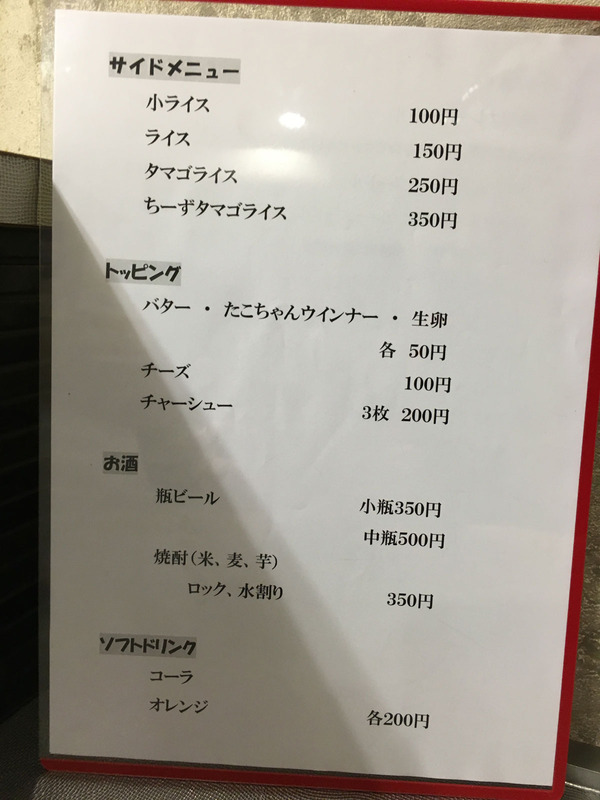 サイドメニュー
小ライス 100円
ライス 150円
タマゴライス 250円
ちーずタマゴライス 350円
トッピング
バター ・ たこちゃんウインナー ・ 生卵
各 50円
チーズ 100円
チャーシュー 3枚 200円
お酒
瓶ビール 小瓶350円
中瓶500円
焼酎(米、麦、芋)
ロック、水割り 350円
ソフトドリンク
コーラ
オレンジ 各200円